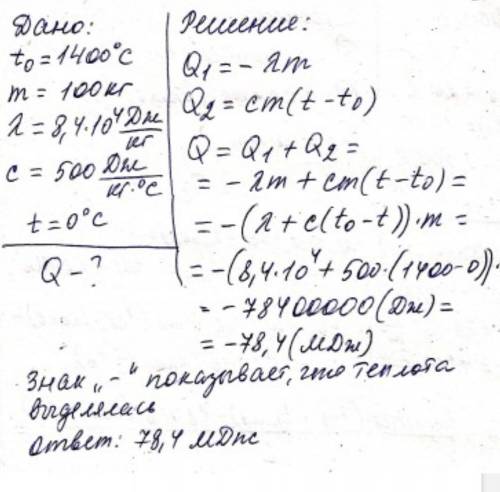 Дано:
t₀ = 1400°C
m = 100 кг
λ = 8,4·10⁴ Дж/кг
c = 500 Дж/кг·°C
t = 0°C
Q - ?
Решение:
Q₁ = - λm
Q₂ = cm(t - t₀)
Q = Q₁ + Q₂ =
= - λm + cm(t - t₀) =
= -(λ + c(t₀ - t))·m =
= -(8,4·10⁴ + 500·(1400-0))·
= - 78400000 (Дж) =
= -78,4 (МДж)
Знак „-" показывает, что теплота
выделялась
ответ: 78,4 МДж